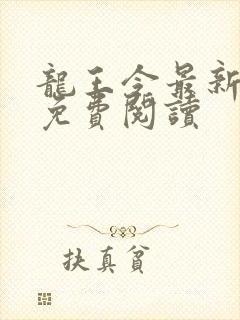 龍王令最新
免費閱讀
扶真貧